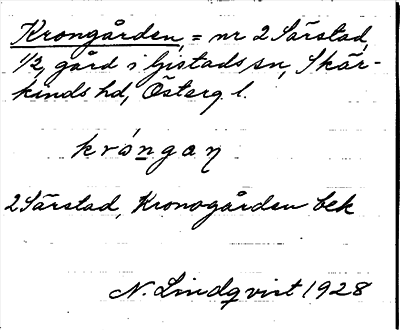 Krongården, = nr 2 Särstad,
1/2, gård i Gistads sn, Skär-
kinds hd, Österg. l.
krón̲gaɳ
2 Särstad, Kronogården bek
N. Lindqvist 1928